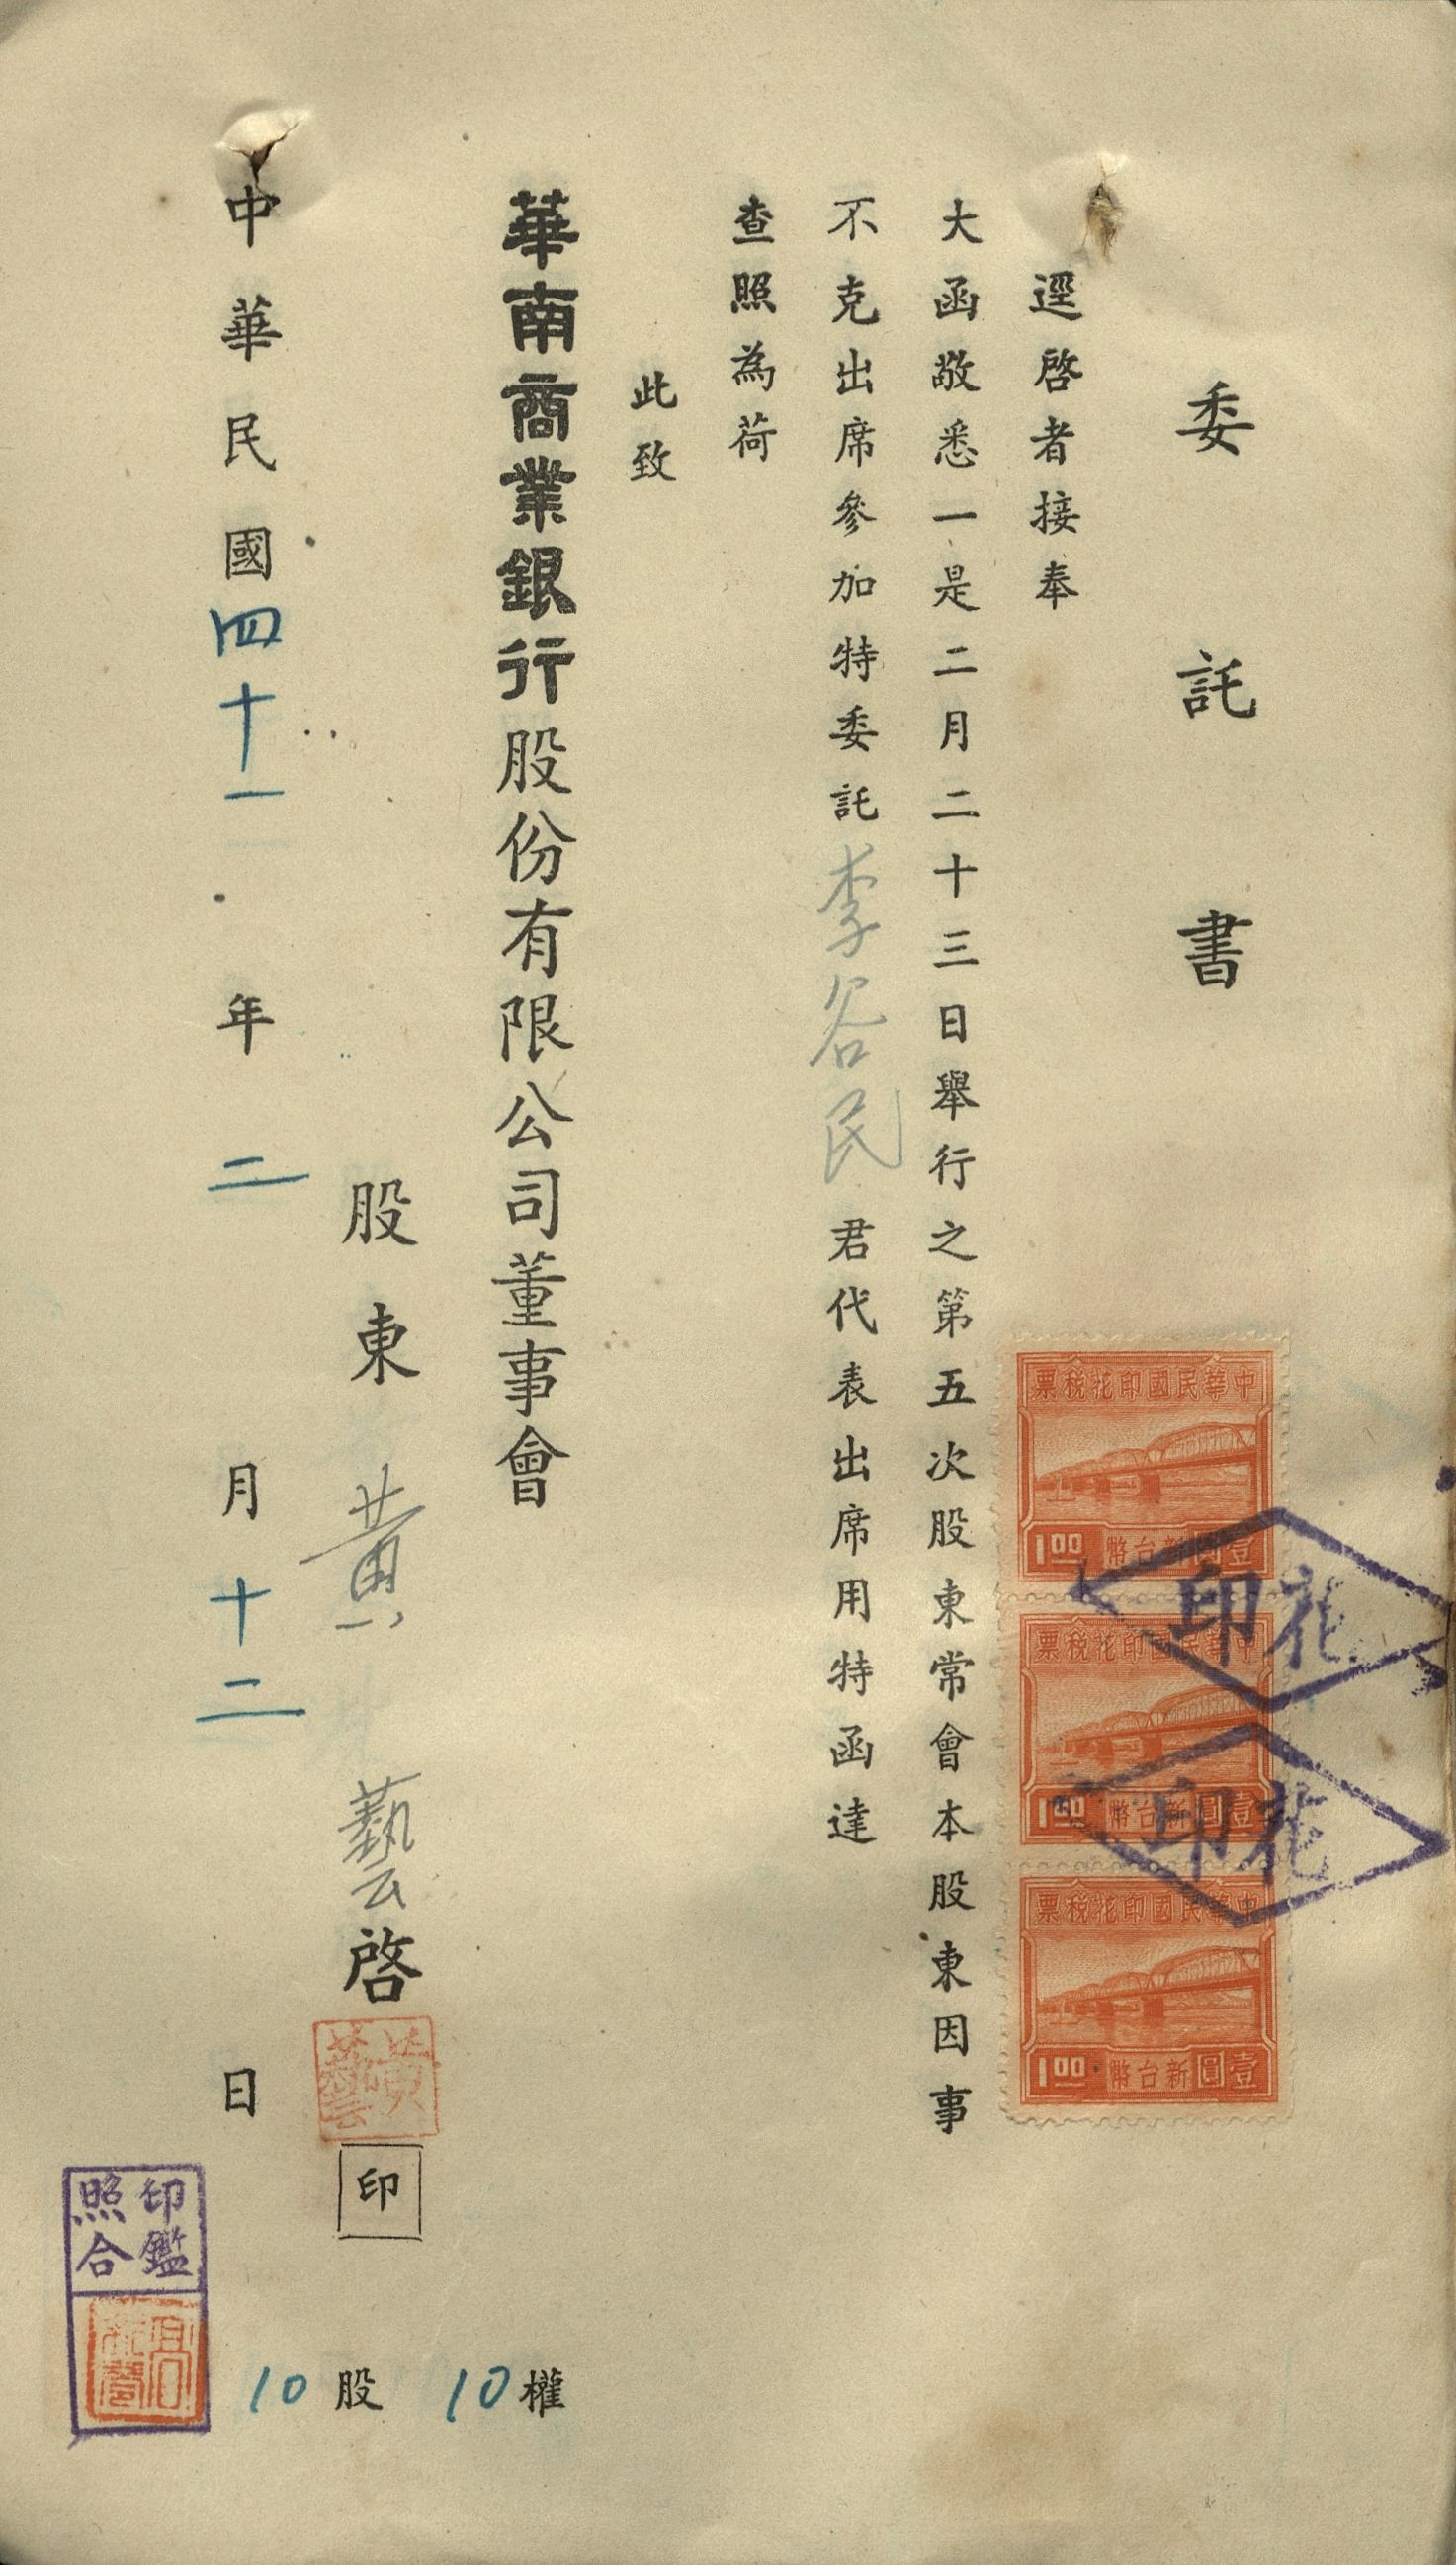 委託書
逕啓者接奉
大函敬悉一是二月二十三日舉行之第五次股東常會本股東因事
不克出席參加特委託李谷民君代表出席用特函達
查照為荷
此致
華南商業銀行股份有限公司董事會
股東黃藝啓
黃藝
印
中華民國四十一年二月十二日
10股 10權
印鑑
照合
中華民國印花稅票
壹圓新台幣
1.00
中華民國印花稅票
壹圓新台幣
1.00
中華民國印花稅票
壹圓新台幣
1.00
印花
印花